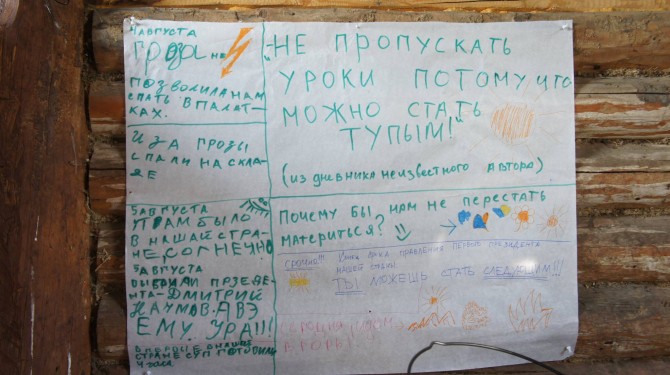 4 АВГУСТА
ГРОЗА НЕ
ПОЗВОЛИЛА НАМ
СПАТЬ В ПАЛАТ-
КАХ.
ИЗА ГРОЗЫ
СПАЛИ НА СКЛА-
ДЕ
5 АВГУСТА
УТРАМ БЫЛО
В НАШЕЙ СТРА-
НЕ, СОГНЕЧНО
5 АВГУСТА
ВЫБРАЛИ ПРЗЕВЕ-
НТА-ДМИТРИЙ
НАУМОВ. АВЭ
ЕМУ. УРА!!!
СТРАНЕ СУП ГОТОВИЛИ
4 ЧАСА
„НЕ ПРОПУСКАТЬ
УРОКИ ПОТОМУ ЧТО
МОЖНО СТАТЬ
ТУПЫМ!"
(ИЗ ДНЕВНИКА НЕИЗВЕСТНОГО АВТОРА)
ПОЧЕМУ БЫ НАМ НЕ ПЕРЕСТАТЬ
МАТЕРИТЬСЯ?
СРОЧНО!!! ПРАВЛЕНИЯ ПЕРВОГО ПРЕЗИДЕНТА
НАШЕЙ СТРАНЫ
ТЫ МОЖЕШЬ СТАТЬ СЛЕДУЮЩИМ!!!